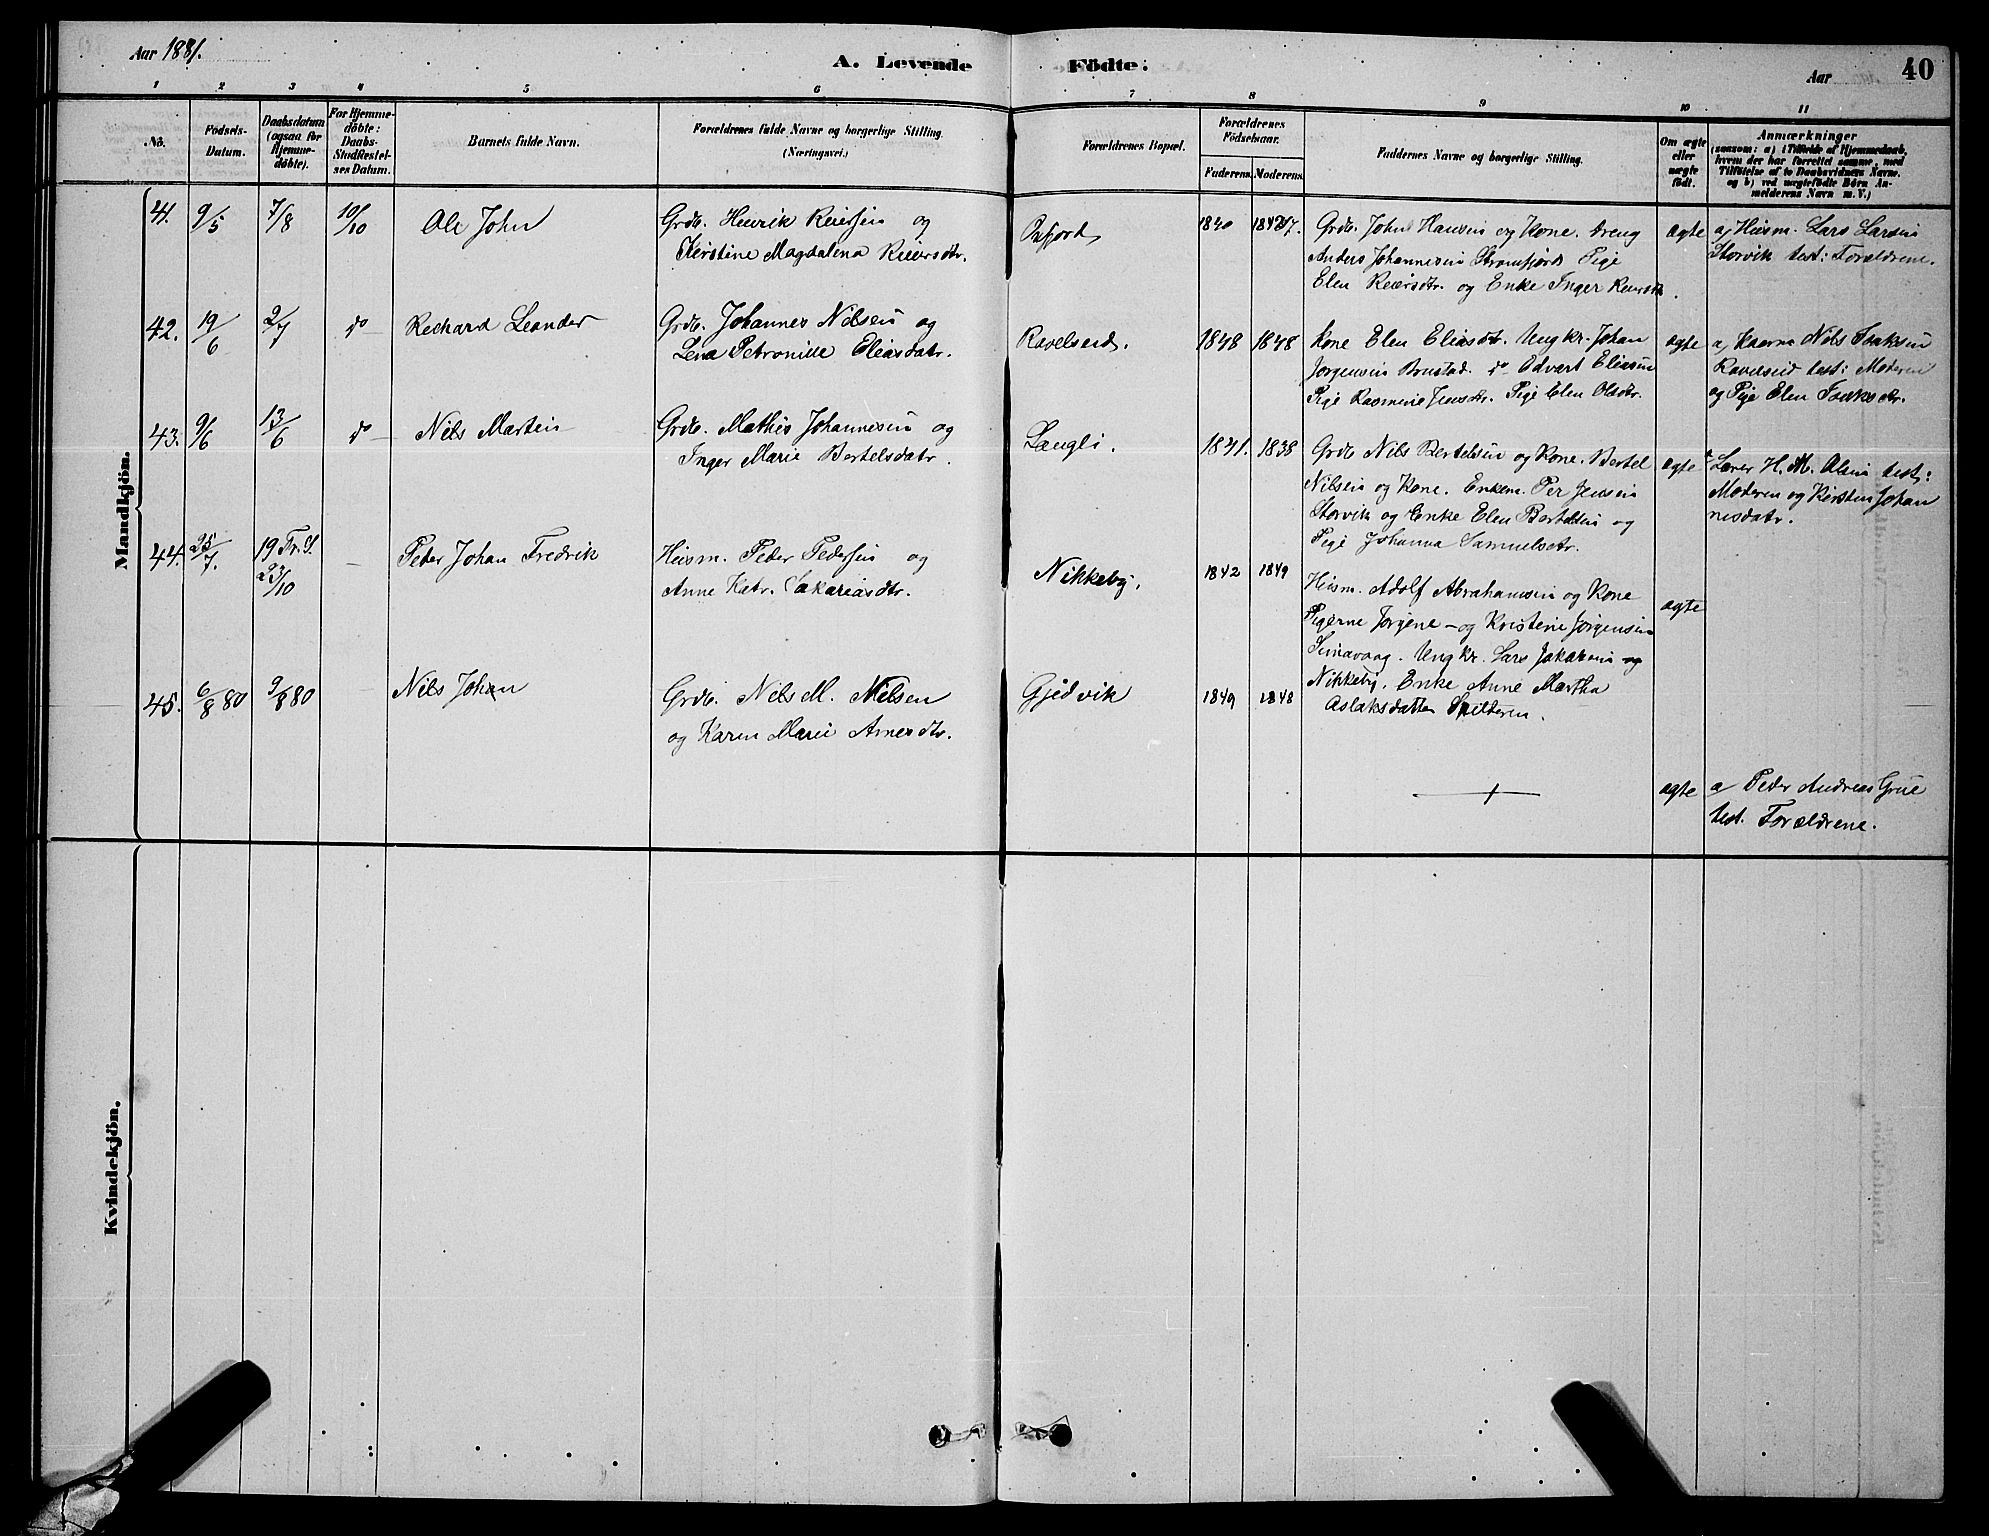 Aar 1881.
A. Levende Födte.
Aar 40
1 2 3 4 5 6 7 8 9 10 11
No.
Födsels-
Datum.
Daabsdatum
(ogsaa for
Hjemme-
döbte).
For Hjemme-
döbte:
Daabs-
Stadfæstel-
ses Datum.
Barnets fulde Navn.
Forældrenes fulde Navne og borgerlige Stilling.
(Næringsvei.)
Forældrenes Bopæl.
Forældrenes
Födselsaar.
Faderens. Moderens.
Faddernes Navne og borgerlige Stilling.
Om ægte
eller
uægte
födt.
Anmærkninger
(saasom: a) i Tilfælde af Hjemmedaab,
hvem der har forrettet samme, med
Tilföielse af to Daabsvidners Navne,
og b) ved uægtefödte Börn An-
melderens Navn m. V.)
Mandkjön.
41. 9/5 7/8 10/10 Ole John
Grdb. Henrik Reiersen og
Kerstine Magdalena Reiersdtr.
1840
Grdb. John Hansen og Kone. Dreng
Anders Johannesen Straumfjord Pige
Elen Reiersdtr. og Enke Inger Reiersdtr.
ægte
a, Husm. Lars Larsen
Storvik test: Forældrene.
42. 19/6 2/7 do Richard Leander
Grdb. Johannes Nilsen og
Lena Petronille Eliasdatr.
Ravelseid. 1848 1848
Kone Elen Eliasdtr. Ungkr. Johan
Jörgensen Brustad. do Edvart Eliasen
Pige Rasmine Jensdtr. Pige Elen Olsdtr.
ægte
a, Nils Isaksen
Ravelseid test: Moderen
og Pige Elen Isaksdtr.
43. 9/6 13/6 do Nils Martin
Grdb. Mathis Johannesen og
Inger Marie Bertelsdatr.
Laugli. 1841. 1838
Grdb Nils Bertelsen og Kone. Bertel
Nilsen og Kone. Enkem. Per Jensen
Storvik og Enke Elen Bertelsen og
Pige Johanna Samuelsdtr.
ægte
Lærer H. M. Olsen test:
Moderen og Kirsten Johan
nesdatr.
44. 25/7. 19 Tr. S.
23/10 — Peder Johan Fredrik
Husm. Peder Pedersen og
Anne Katr. Sakariasdtr.
Nikkeby. 1842 1849
Husm. Adolf Abrahamsen og Kone
Pigerne Jörgine – og Kristine Jörgensen
Simavaag. Ungkr. Lars Jakobsen og
Nikkeby. Enke Anne Martha
Aslaksdatter Spilderen.
ægte
45. 6/8 80 9/8 80 Nils Johan
Grdb. Nils M. Nilsen
og Karen Marie Arnesdtr.
Gjedvik 1849 1848
ægte
a Peder Andreas Grue
test. Forældrene.
Kvindekjön.